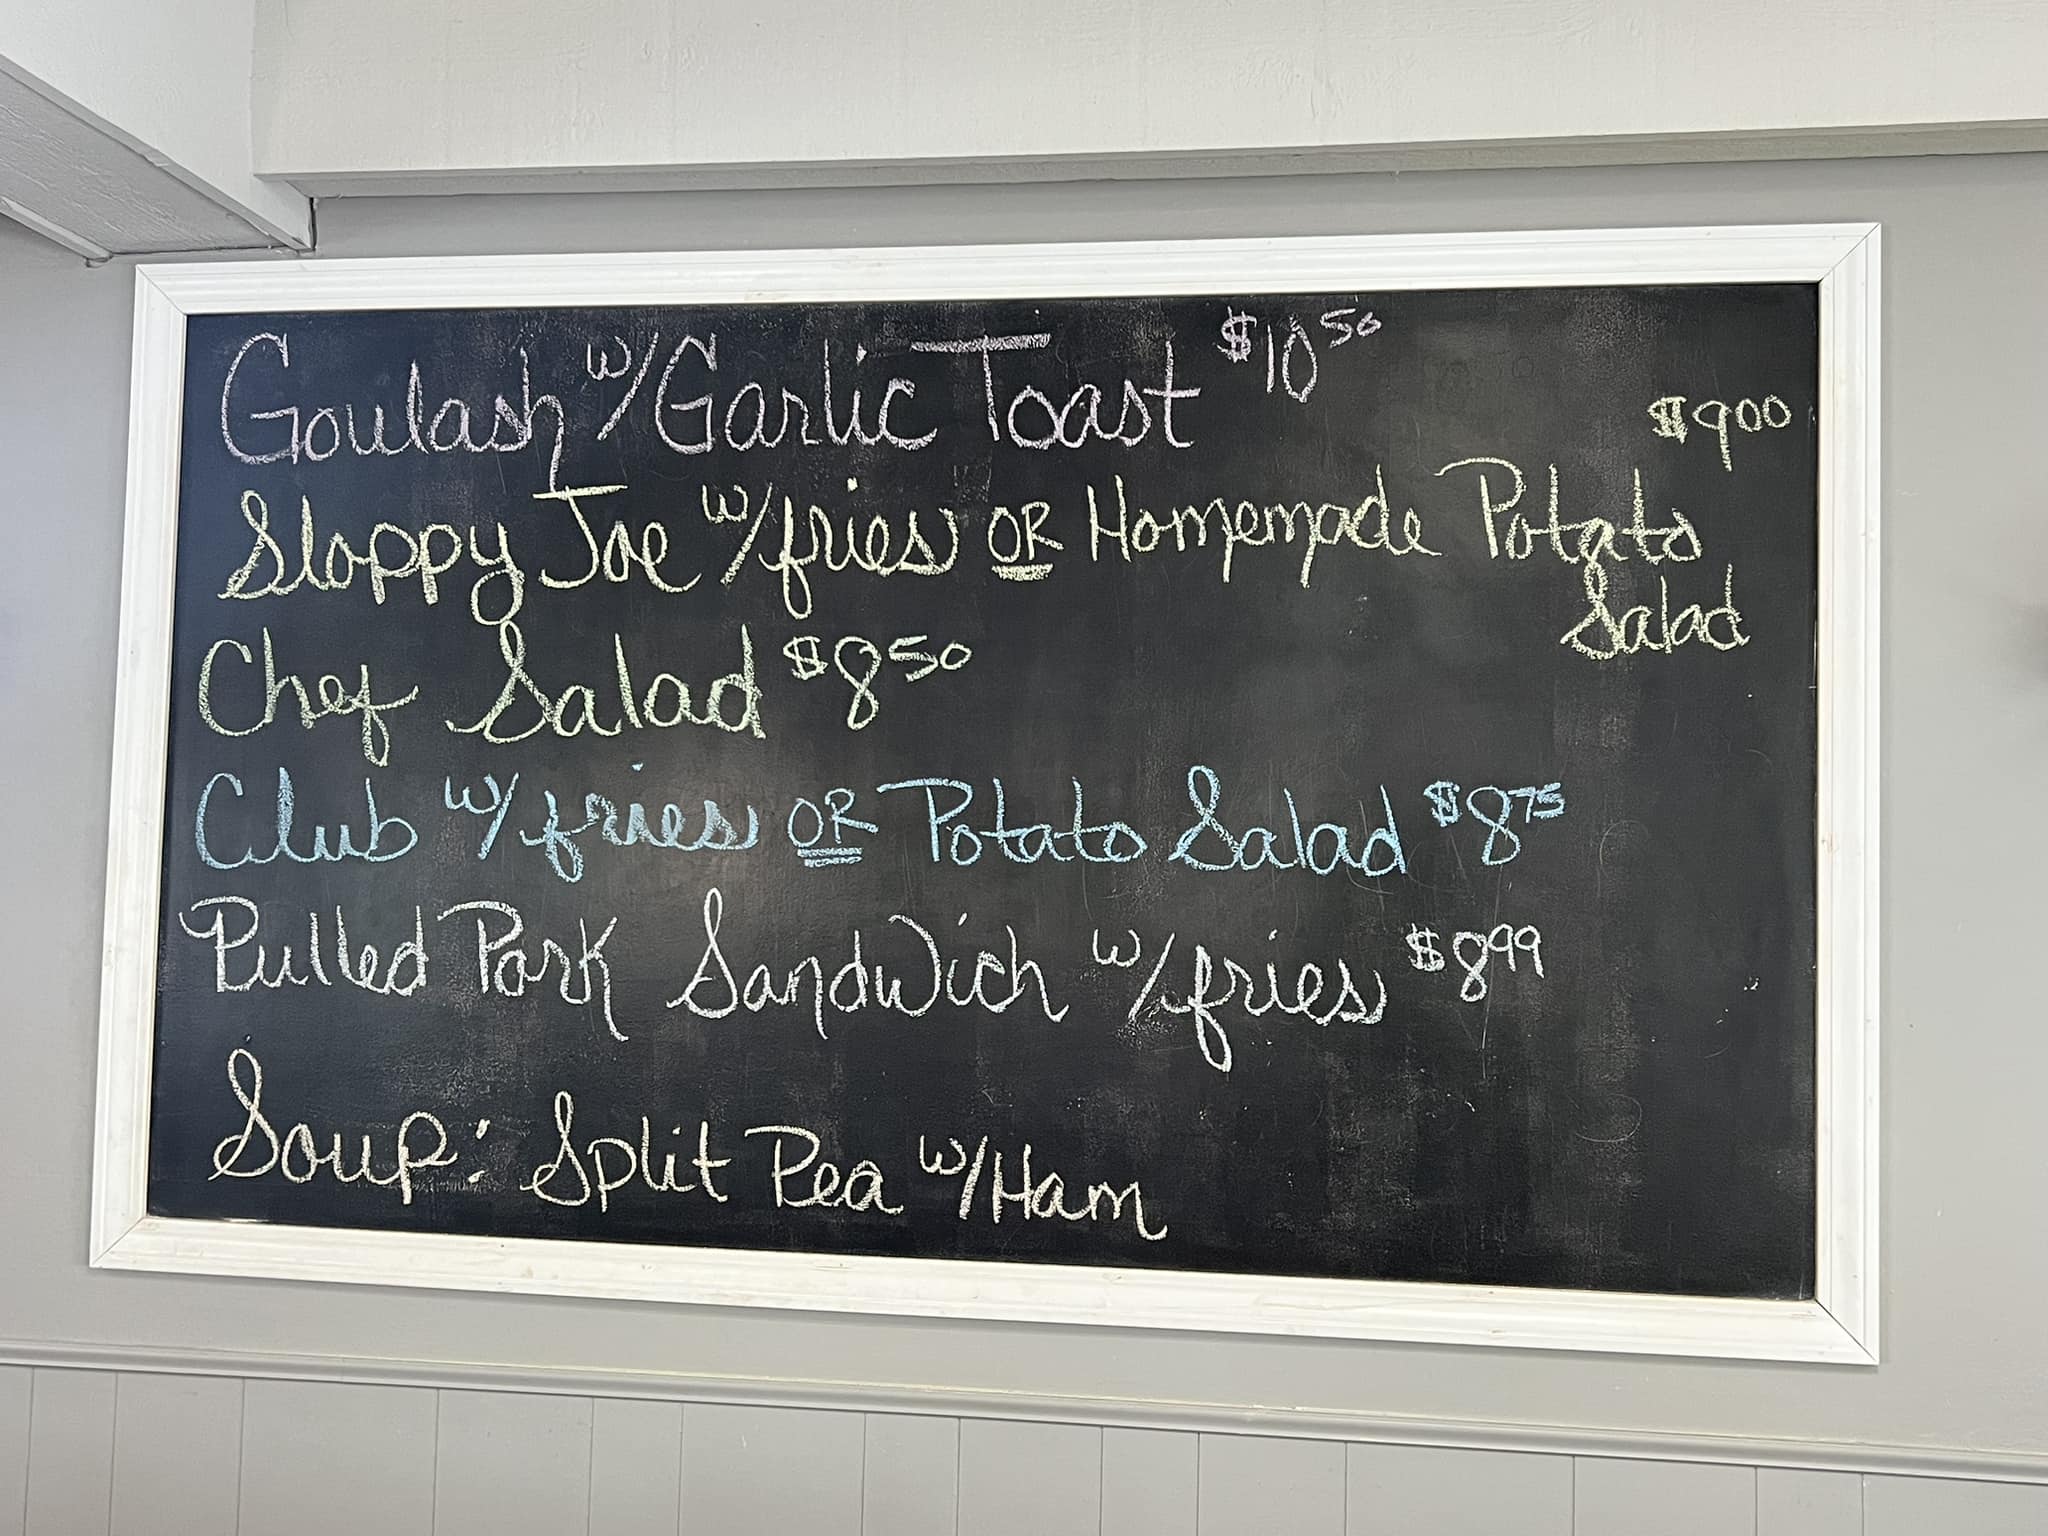 Goulash w/Garlic Toast $10 50
$9 00
Sloppy Joe w/fries OR Homemade Potato
Salad
Chef Salad $8 50
Club w/fries OR Potato Salad $8 75
Pulled Pork Sandwich w/fries $8 99
Soup: Split Pea w/Ham